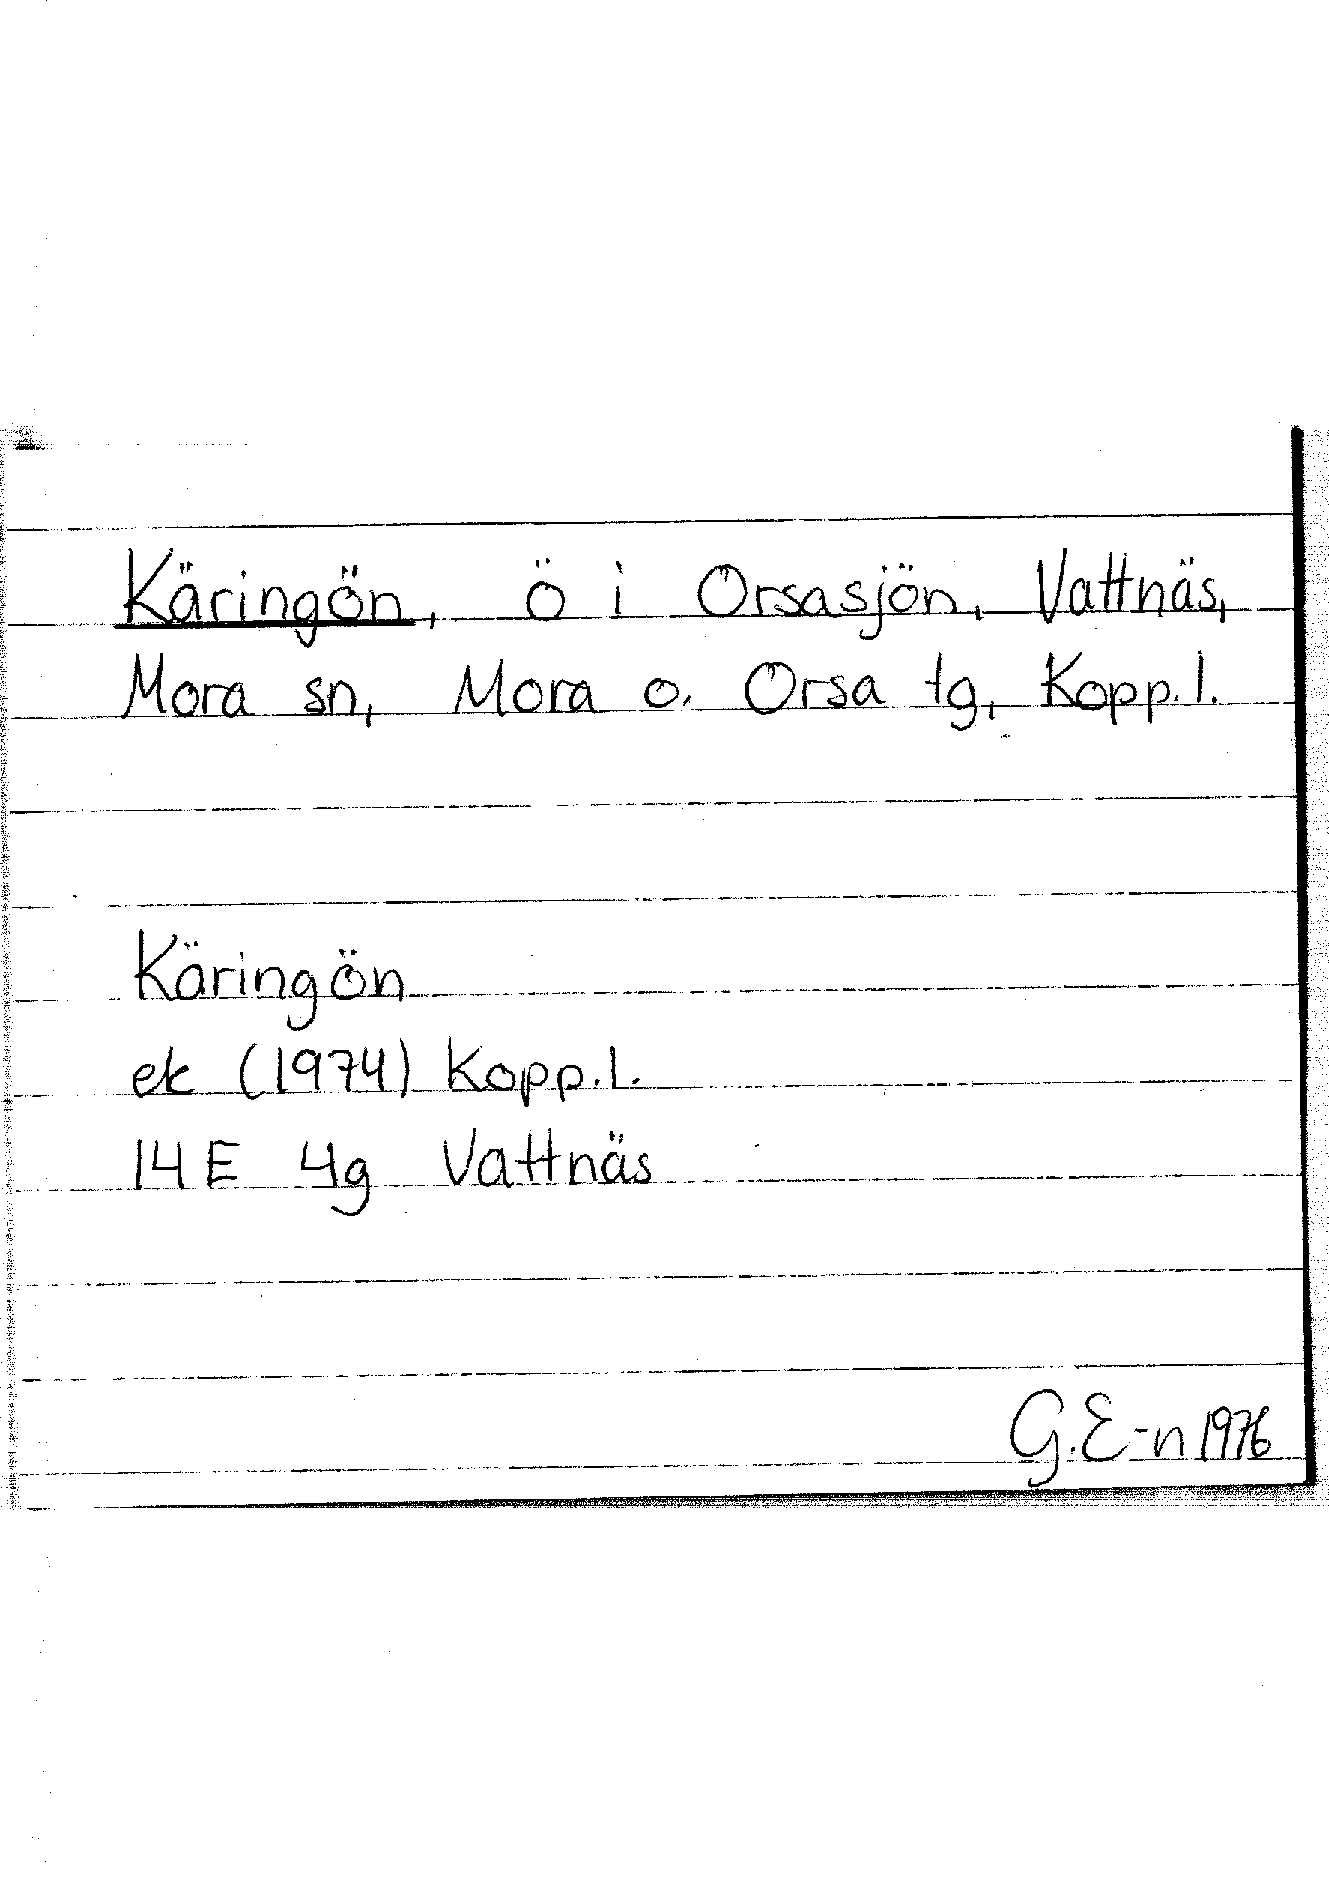 Käringön, ö i Orsasjön, Vattnäs,
Mora sn, Mora o. Orsa tg, Kopp. l.
Käringön
ek (1974) Kopp. l.
14 E 4g Vattnäs
G. E-n 1976